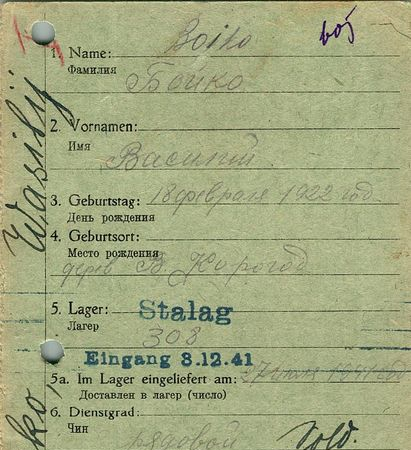 boj
Boiko
1. Name:
Фамилия
Бойко
2. Vornamen:
Имя
Василий
3. Geburtstag: 18 февраля 1922 год
День рождения
4. Geburtsort:
Место рождения
дерев В Корогод
5. Lager: Stalag
Лагер
308
Eingang 8.12.41
5a. Im Lager eingeliefert am:
Доставлен в лагер (число)
6. Dienstgrad:
Чин
рядовой Sold.
Wasilij
ko,